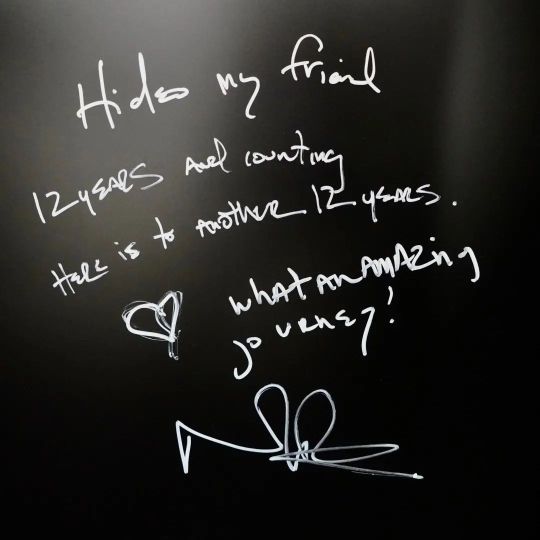 Hideo my friend
12 years and counting
Here is to another 12 years.
What an amazing
journey!